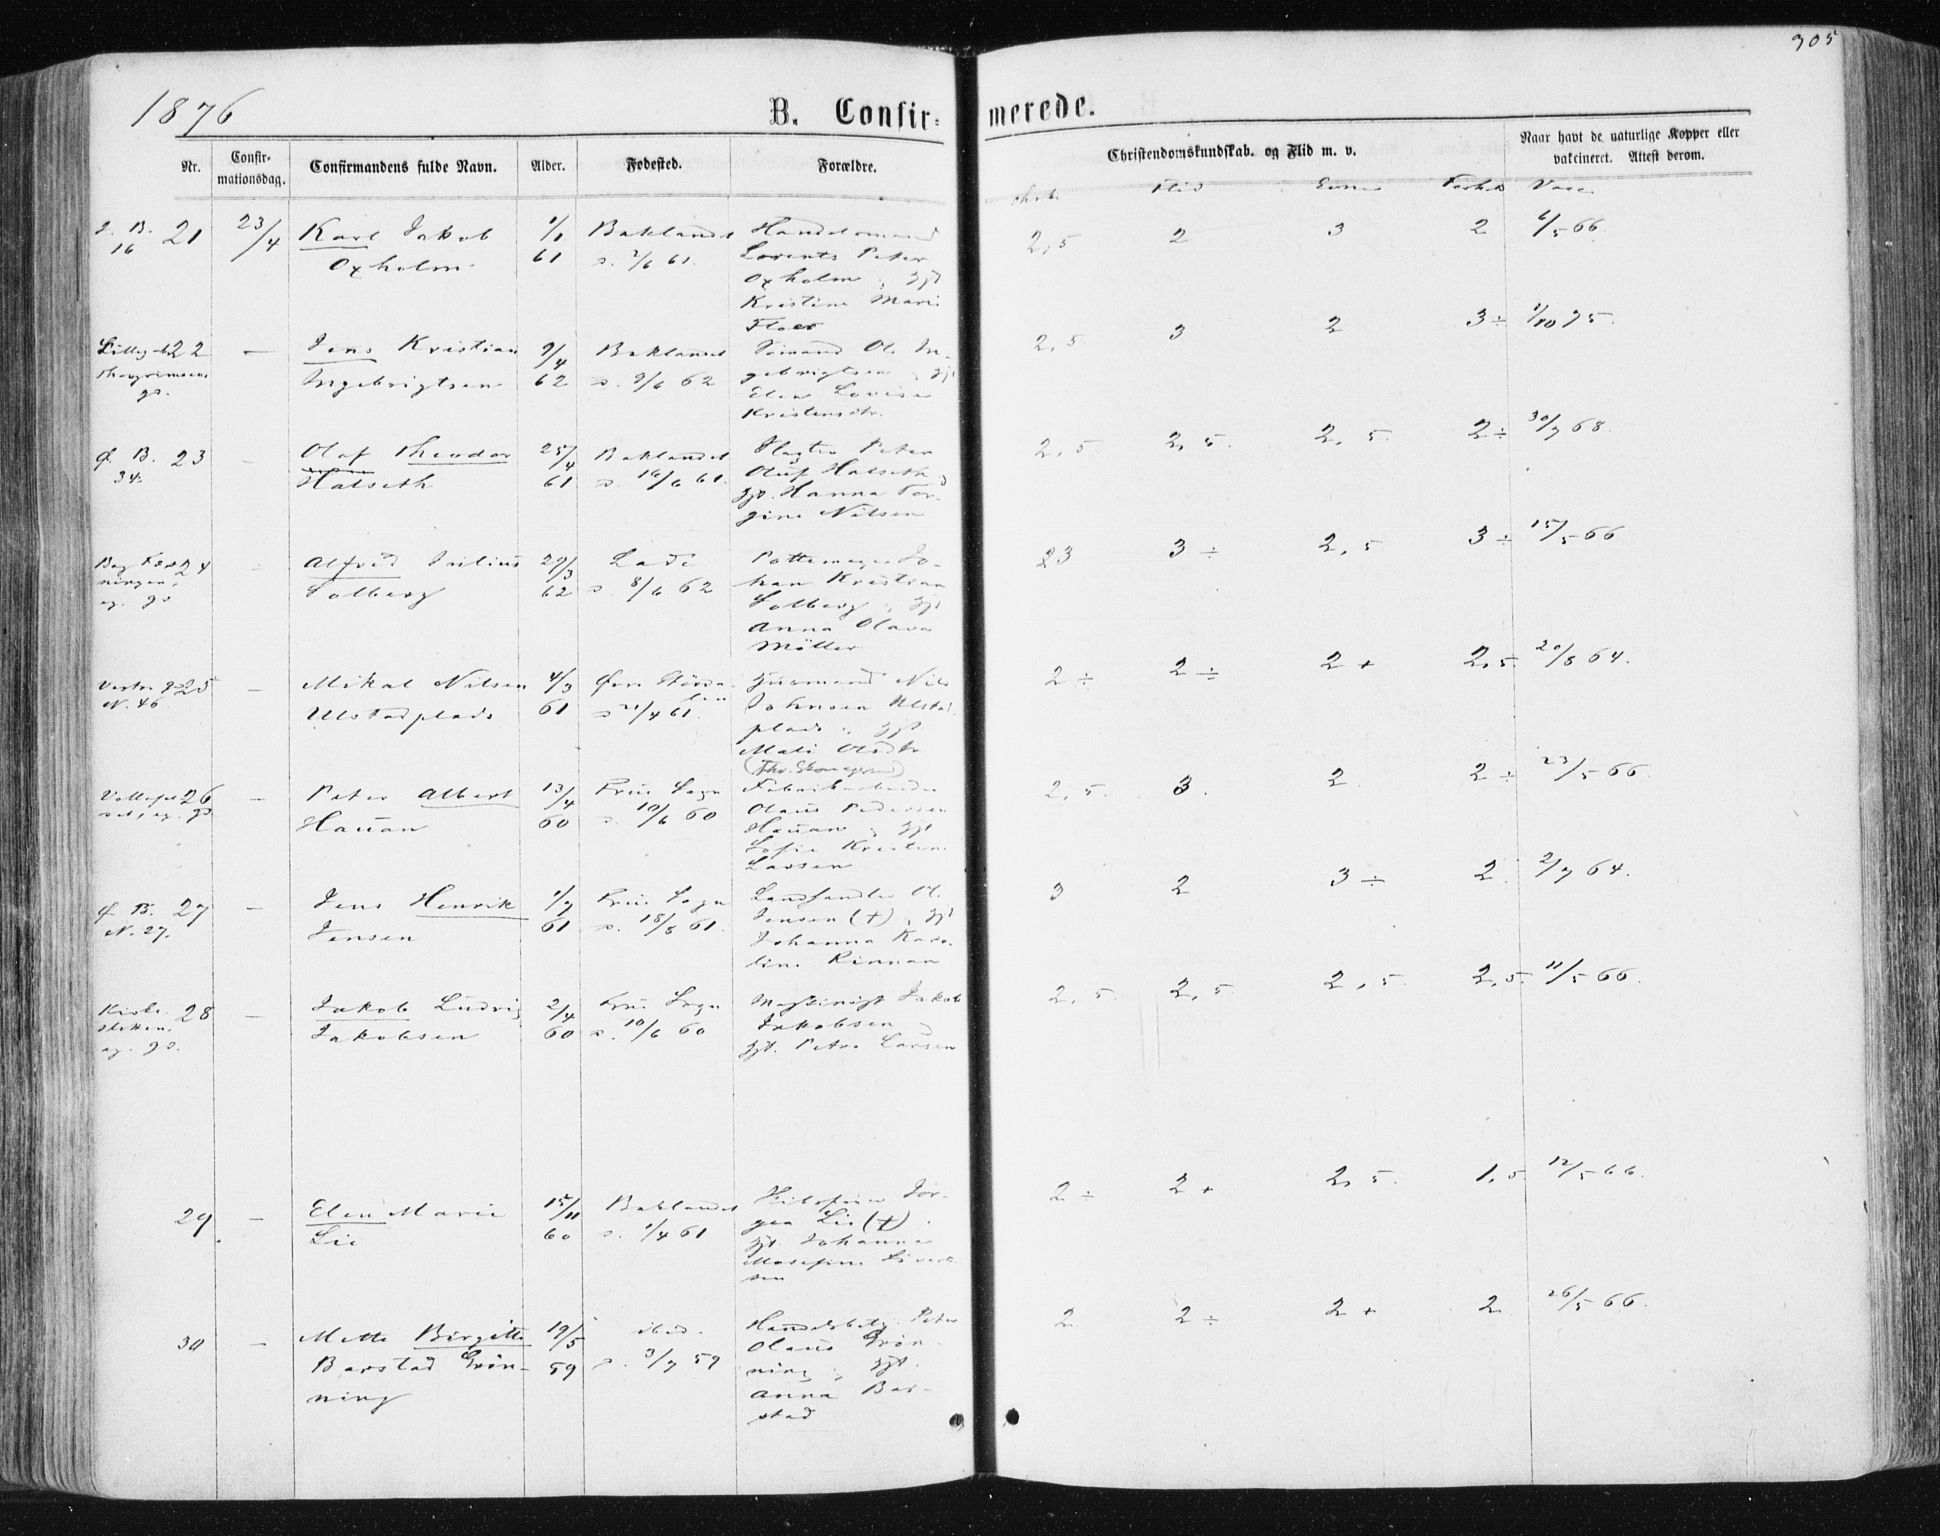 305
1876
B. Confir- merede.
Nr.
Confir-
mationsdag.
Confirmandens fulde Navn.
Alder.
Fødested.
Forældre.
Christendomskundskab. og Flid m. v.
Naar havt de naturlige Kopper eller
vakcineret. Attest derom.
Flid Vacc
B. 21 23/4 Karl Jakob 1/1 Baklandet Handelsmand
16 Oxholm 61 Lorents Peter
Oxholm og gjt
Kristine Marie
2,5 2 3 2 6/5 66.
22 — Jens Kristian 9/4 Baklandet Ol. In-
Ingebrigtsen 62 d. 9/6 62 gebrigtsen og gjt
Elen Lovise
2,5 3 2 3÷ 1/10 75.
Ø. B. 23 — Olaf Theodor 25/4 Baklandet Peter
34 Halseth 61 d. 16/6 61. Oluf Halseth og
gjt. Hanna Tor-
gine Nilsen
2,5. 2,5. 2,5. 2÷ 30/7 68.
24 — Alfred Julius 29/3 Lade Pottemager Jo-
Solberg 62 d. 8/6 62 han Kristian
Solberg og gjt
Anna Olava
Möller
3 3÷ 2,5 3÷ 15/5 66
25 — Mikal Nilsen 4/3 Øvre Størda- Husmand Nils
N. 46. Ulstadplads 61 len Johnsen Ulstad
d. 21/4 61. plads og gjt
Mali Olsdtr
2÷ 2÷ 2+ 2,5. 20/8 64.
26 — Peter Albert 13/4 Frue Sogn Fabrikarbeider
Hauan 60 d. 10/6 60 Olaus Pedersen
Hauan og gjt
Sofie Kristine
Larsen
2,5. 3. 2 2÷ 23/5 66.
Ø B. 27 — Jens Henrik 1/7 Frue Sogn Landhandler Ol.
N. 27. Jensen 61 d. 18/8 61. Jensen (†) og gjt
Johanna Karo-
line Rinnan
3 2 3÷ 2. 2/7 64.
28 — Jakob Ludvig 2/4 Frue Sogn Maskinist Jakob
eg. gd. Jakobsen 60 d. 10/6 60 Jakobsen og
gjt. Petra Larsen
2,5. 2,5 2,5. 2,5. 11/5 66.
29 — Elen Marie 15/11 Baklandet Jør-
Lie 60 d. 1/4 61 gen Lie (†) og
gjt. Johanna
sen
2÷ 2+ 2,5. 1,5 12/5 66.
30 — Mette Birgitte 19/5 ibid. Handelsbetj. Peter
Barstad Grön- 59 d. 3/7 59 Olaus Grön-
ning ning og gjt.
Anna Bar-
stad
2 2÷ 2+ 2. 26/5 66.